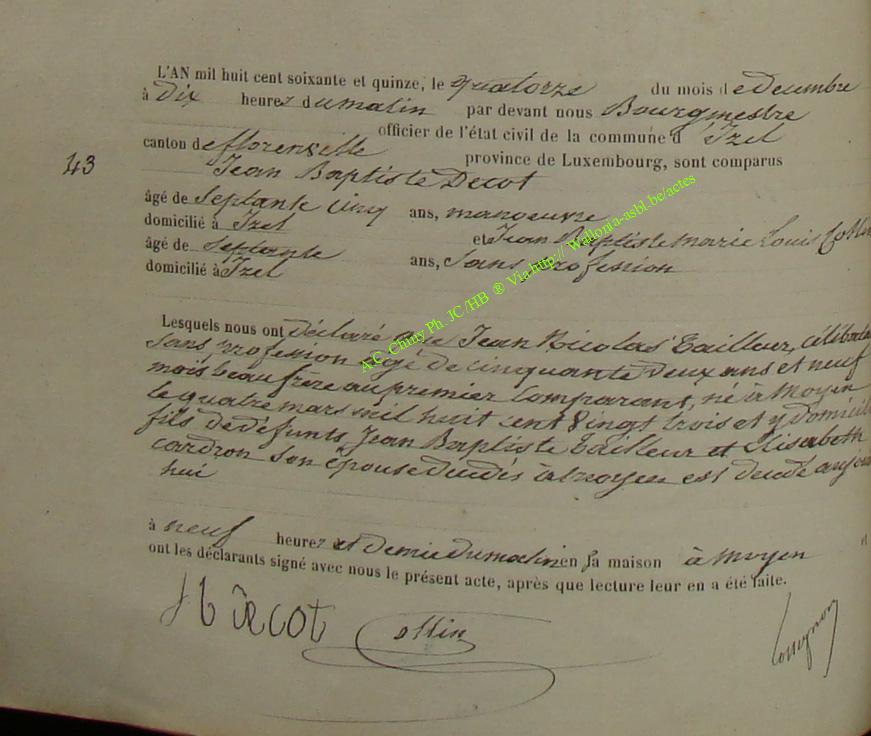 L'AN mil huit cent soixante et quinze, le quatorze du mois de Decembre
à Dix heures du matin par devant nous Bourgmestre
officier de l'état civil de la commune d'Izel
canton de florenville province de Luxembourg, sont comparus
43
Jean Baptiste Decot
âgé de Septante cinq ans, manoeuvre
domicilié à Izel et Jean Baptiste marie Louis Collin
âgé de Septante ans, Sans profession
domicilié à Izel
A.C. Chiny Ph. JC /HB ® Via http:// Wallonia-asbl.be/actes
Lesquels nous ont déclaré que Jean Nicolas Tailleur, céliba
Sans profession agé de cinquante deux ans et neuf
mois beau frère au premier Comparant, né à Moyen
le quatre mars mil huit cent vingt trois et y domicili
fils de défunts Jean Baptiste Tailleur et Elisabeth
cardron son épouse décédés à Moyen est décédé aujour
hui
à neuf heures et demie du matin en sa maison à Moyen
ont les déclarants signé avec nous le présent acte, après que lecture leur en a été faite.
Decot Collin